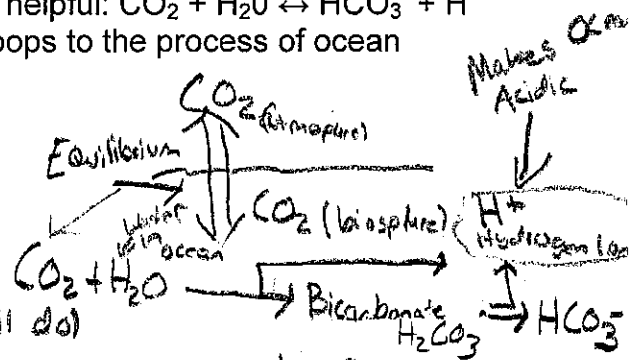 helpful: CO₂ + H₂0 ↔ HCO₃ + H
oops to the process of ocean
Makes
Acidic
CO₂ (Atmosphere)
Equilibrium
Water
in ocean
CO₂ (biosphere)
H⁺
Hydrogen Ion
CO₂ + H₂O
Bicarbonate
H₂CO₃
HCO₃⁻
do)